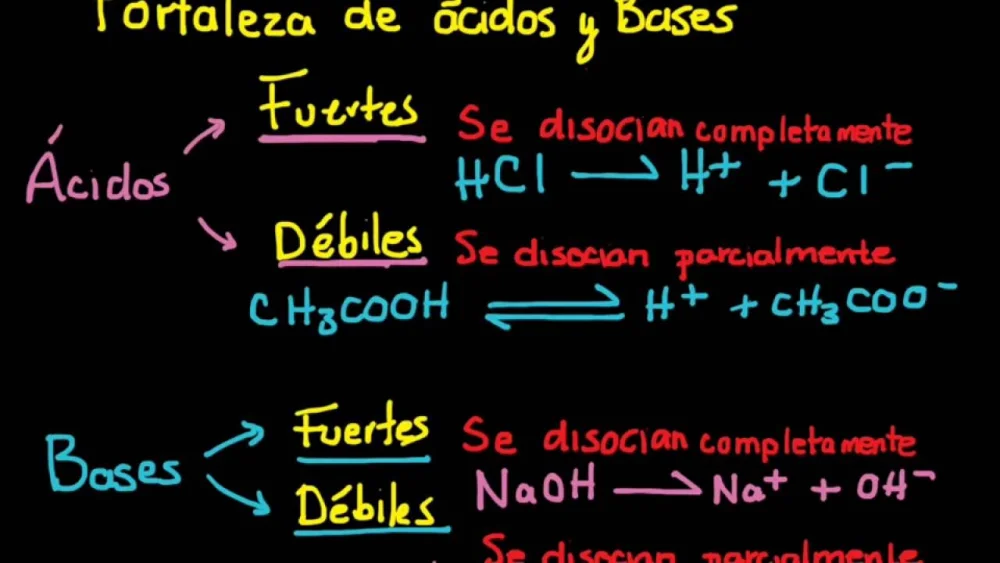 Fortaleza de ácidos y Bases
Fuertes
Se disocian completamente
Ácidos
HCl ⟶ H⁺ + Cl⁻
Débiles
Se disocian parcialmente
CH₃COOH ⇌ H⁺ + CH₃COO⁻
Fuertes
Se disocian completamente
Bases
NaOH ⟶ Na⁺ + OH⁻
Débiles
Se disocian parcialmente